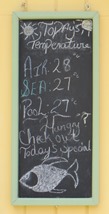 Today's
Temperature
AIR: 28°
SEA: 27°
Pool: 27°
Hungry?
Check out
Today's Special